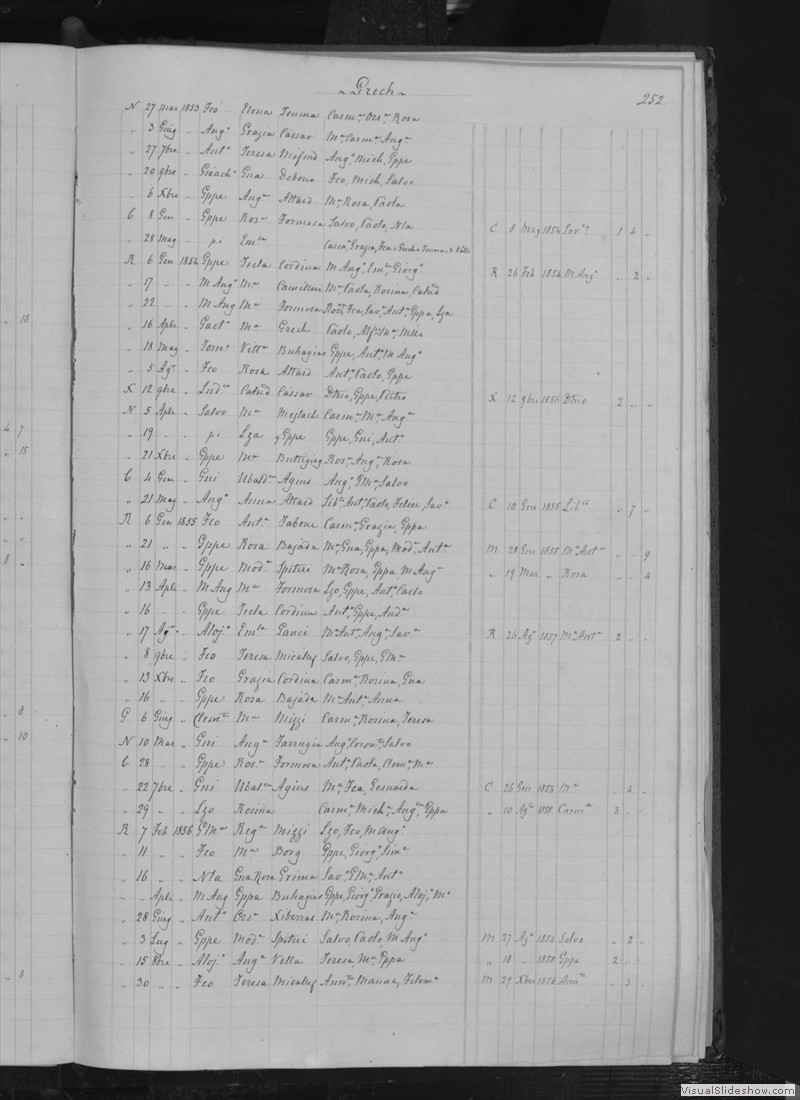 Grech
252
N 27 Mar 1853 Fco Elena Temma Carm.a Ors.a Rosa
" 3 Giug " Ang.o Grazia Cassar M.a Carm.a Ang.a
" 27 7bre " Ant.o Teresa Mifsud Ang.o Mich, Gppe
" 20 9bre " Gioach.o Gna Debona Fco, Mich, Salvo
" 6 Xbre " Gppe Ang.a Attard M.a Rosa, Paola
C 8 Gen " Gppe Ros.a Formosa Salvo, Paolo, Nta C 8 Mag 1854 Sav.a 1 4 "
" 28 Mag " pi Em.la Carm.a Grazia, Fca
R 6 Gen 1854 Gppe Tecla Cordina M Ang.o Em.a Giorg.o R 26 Feb 1854 M Ang.o " 2 "
" 17 " " M Ang.o M.a Camilleri M.a Paola, Rosina, Catud
" 22 " " M Ang M.a Formosa Ros.a Fca, Sav.a Ant.a Gppa, Lza
" 16 Aple " Gaet.o M.a Grech Paolo, Alf.o M.a
" 18 Mag " Tom.o Vitt.a Buhagiar Gppe, Ant.o M Ang.o
" 5 Ag.o " Fco Rosa Attard Ant.a Paolo, Gppe
X 12 9bre " Lud.co Catud Cassar Dtrio, Gppe, Pietro X 12 9bre 1856 Dtrio 2 " "
N 5 Aple " Salvo M.a Mejlach Carm.a M.a Ang.a
" 19 " " pi Lza q Gppe Gppe, Gni, Ant.o
" 21 Xbre " Gppe M.a Buttigieg Ros.a Ang.a Rosa
C 4 Gen " Gni Ubald.a Agius Ang.o GM.a Salvo
" 21 Mag " Ang.o Anna Attard Lib.a Ant.o Paolo, Felice, Sav.a C 10 Gen 1855 Lib.a " 7 "
R 6 Gen 1855 Fco Ant.a Tabone Carm.a Grazia, Gppa
" 21 " " Gppe Rosa Bajada M.a Gna, Gppa, Mod.a Ant.a M 28 Gen 1855 M.a Ant.a " " 9
" 16 Mar " Gppe Mod.a Spiteri M.a Rosa, Gppa M Ang.o " 19 Mar " Rosa " " 4
" 13 Aple " M Ang M.a Formosa Lzo, Gppe, Ant.o Carlo
" 16 " " Gppe Tecla Cordina Ant.o Gppe, And.a
" 17 Ag.o " Aloj.o Em.la Ganci M.a Ant.a Ang.o Sav.a R 26 Ag.o 1857 M.a Ant.a 2 " "
" 8 9bre " Fco Teresa Micallef Salvo, Gppe, GM.a
" 13 Xbre " Fco Grazia Cordina Carm.a Rosina, Gna
" 16 " " Gppe Rosa Bajada M.a Ant.a Anna
G 6 Giug " Clem.te M.a Mizzi Carm.a Rosina, Teresa
N 10 Mar " Gni Ang.a Farrugia Ang.o Coron.a Salvo
C 28 " " Gppe Ros.a Formosa Ant.a Paola, Clem.a M.a
" 22 7bre " Gni Ubal.a Agius M.a Fca, Gesualda C 26 Gen 1856 M.a " 4 "
" 29 " " Lzo Rosina Carm.a Mich.e Ang.a Gppa " 10 Ag.o 1858 Carm.a 3 " "
R 7 Feb 1856 GM.a Reg.a Mizzi Lzo, Fco, M Ang.o
" 11 " " Fco M.a Borg Gppe, Giorg.o Sim.e
" 16 " " Nta Gna Rosa Grima Sav.a GM.a Ant.a
" " Aple " M Ang Gppa Buhagiar Gppe, Giorg.o Grazio, Aloj.o M.a
" 28 Giug " Ant.o Ors.a Xiberras M.a Rosina, Ang.a
" 3 Lug " Gppe Mod.a Spiteri Salvo, Paolo, M Ang.o M 27 Ag.o 1856 Salvo " 2 "
" 15 8bre " Aloj.o Ang.a Vella Teresa, M.a Gppa " 18 " 1858 Gppa 2 " "
" 30 " " Fco Teresa Micallef Ann.ta Marina, Filom.a M 29 Xbre 1856 Ann.ta " 3 "
18
4 7
15
8
8
10
8
VisualSlideshow.com